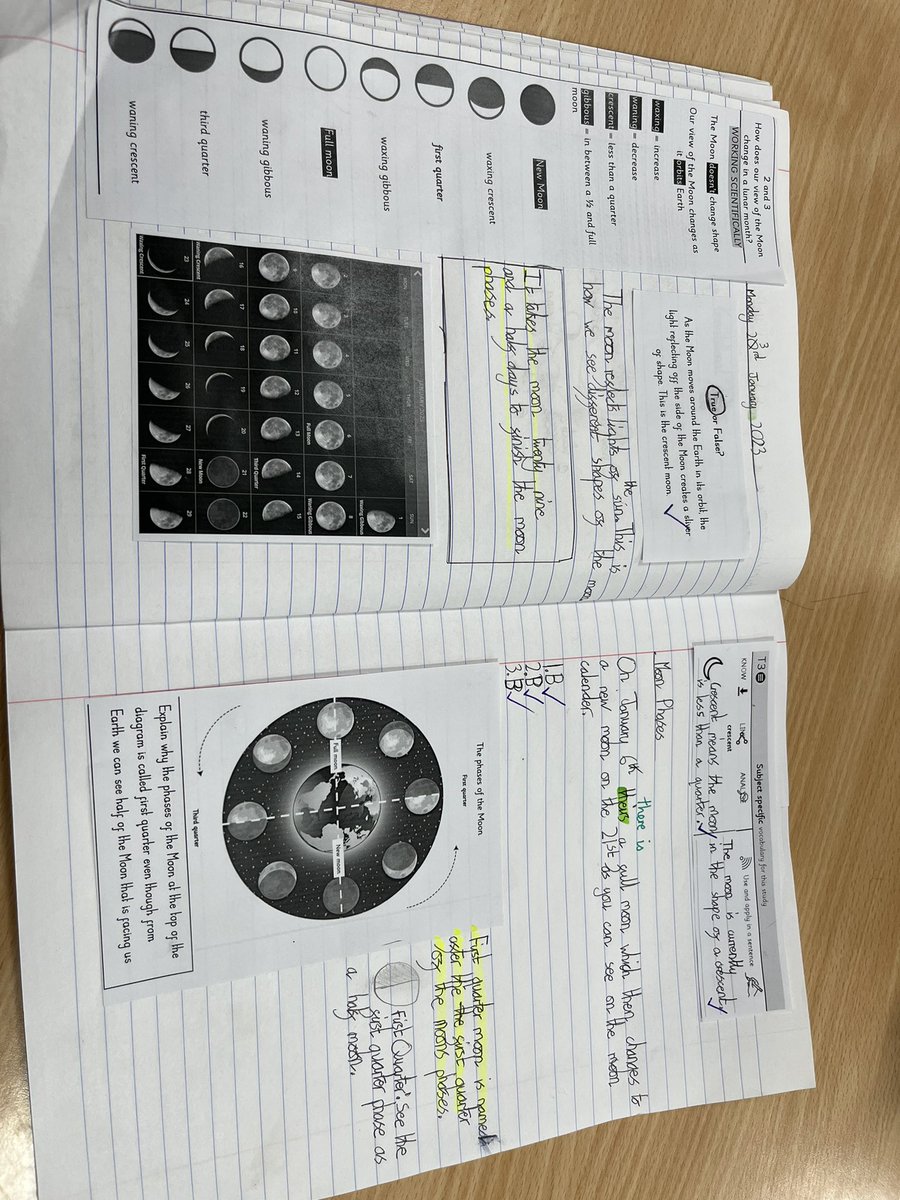 2 and 3
How does our view of the Moon
change in a lunar month?
WORKING SCIENTIFICALLY
The Moon doesn't change shape
Our view of the Moon changes as
it orbits Earth
waxing = increase
waning = decrease
crescent = less than a quarter
gibbous = in between a ½ and full
moon
New Moon
waxing crescent
first quarter
waxing gibbous
Full moon
waning gibbous
third quarter
waning crescent
Monday 23rd January 2023
True or False?
As the Moon moves around the Earth in its orbit, the
light reflecting off the side of the Moon creates a sliver
of shape. This is the crescent moon.
The moon reflects lights of the sun. This is
how we see different shapes of the moon
It takes the moon twenty nine
and a half days to finish the moon
phases.
SAT
SUN
1
Waxing Gibbous
2
3
4
5
6
Full Moon
7
8
Waning Gibbous
9
10
11
12
13
14
Third Quarter
15
16
Waning Crescent
17
18
19
20
21
New Moon
22
23
Waxing Crescent
24
25
26
27
28
First Quarter
29
T3
Subject specific vocabulary for this study
KNOW
LINK
ANALYSE
Use and apply in a sentence
crescent
Crescent means the moon
is less than a quarter.
The moon is currently
in the shape of a crescent
Moon Phases
there is
On January 6th theirs a full moon which then changes to
a new moon on the 21st as you can see on the moon
calender.
1.B
2.B
3.B
The phases of the Moon
First quarter
Full moon
New moon
Third quarter
Explain why the phases of the Moon at the top of the
diagram is called first quarter even though from
Earth we can see half of the Moon that is facing us
First quarter moon is named
after the the first quarter
of the moons phases.
First Quarter. See the
first quarter phase as
a half moon.